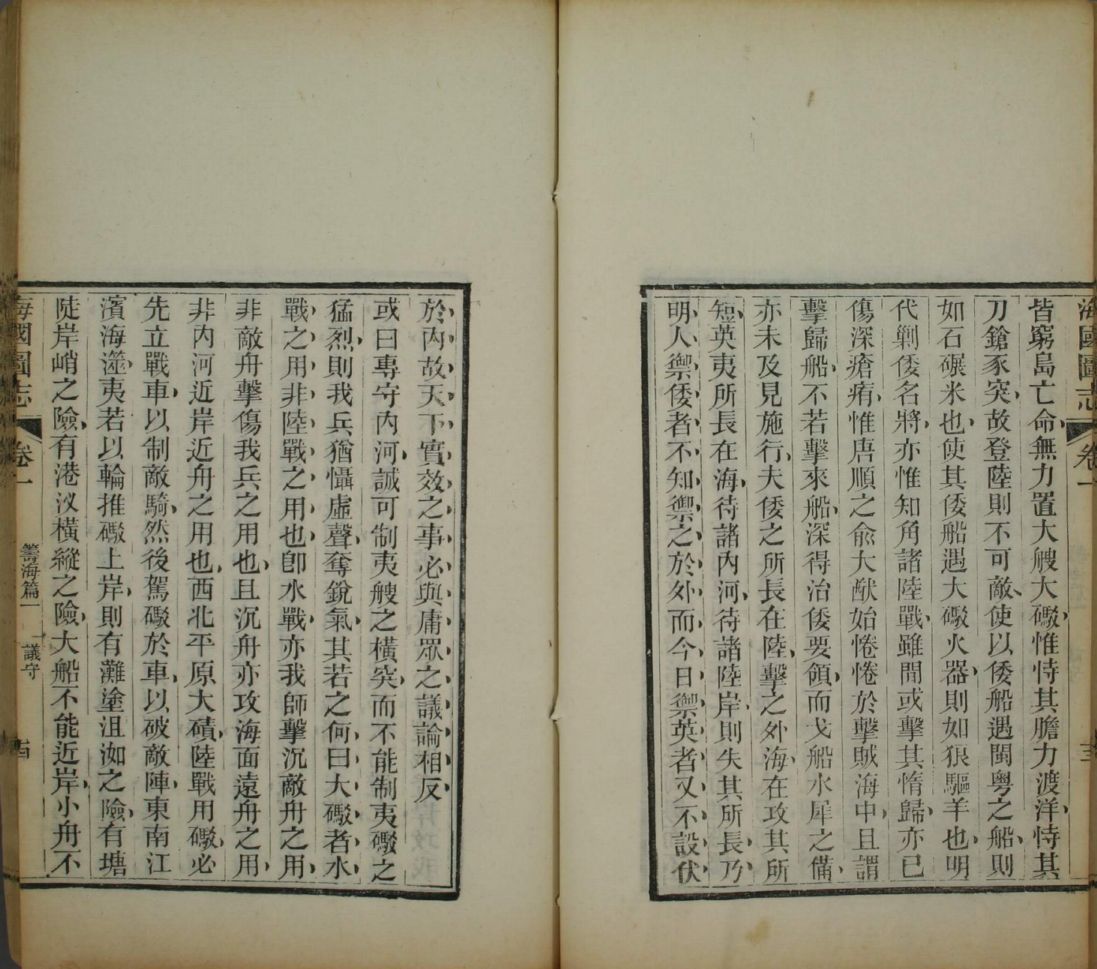 海國圖志 卷一
皆窮島亡命無力置大艘大礮惟恃其膽力渡洋恃其
刀鎗豕突故登陸則不可敵使以倭船遇閩粵之船則
如石碾米也使其倭船遇大礮火器則如狼驅羊也明
代剿倭名將亦惟知角諸陸戰雖間或擊其惰歸亦已
傷深瘡痏惟唐順之俞大猷始惓惓於擊賊海中且謂
擊歸船不若擊來船深得治倭要領而戈船水犀之備
亦未及見施行夫倭之所長在陸擊之外海在攻其所
短英夷所長在海待諸內河待諸陸岸則失其所長乃
明人禦倭者不知禦之於外而今日禦英者又不設伏
於內故天下實效之事必與庸眾之議論相反
或曰專守內河誠可制夷艘之橫突而不能制夷礮之
猛烈則我兵猶懾虛聲奪銳氣其若之何曰大礮者水
戰之用非陸戰之用也卽水戰亦我師擊沉敵舟之用
非敵舟擊傷我兵之用也且沉舟亦攻海面遠舟之用
非內河近岸近舟之用也西北平原大磧陸戰用礮必
先立戰車以制敵騎然後駕礮於車以破敵陣東南江
濱海澨夷若以輪推礮上岸則有灘塗沮洳之險有塘
陡岸峭之險有港汊橫縱之險大船不能近岸小舟不
海國圖志 卷一 籌海篇一 議守